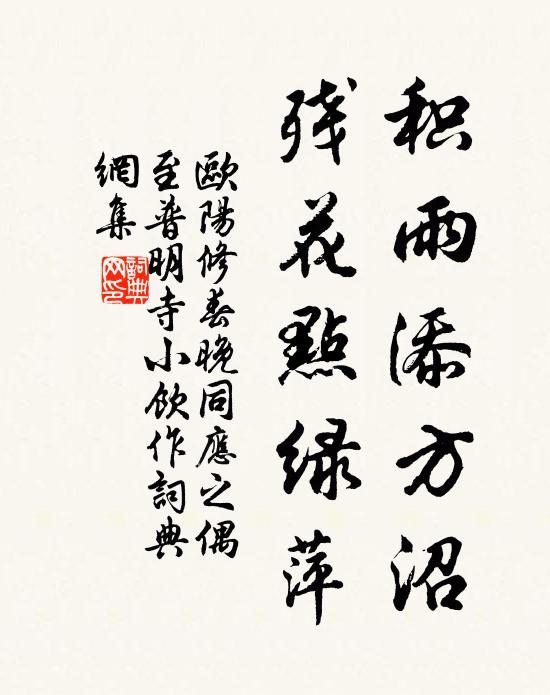 积雨添方沼
残花點绿萍
歐陽修春晚同應之偶
至普明寺小飲作詞典
網集
詞典
网印